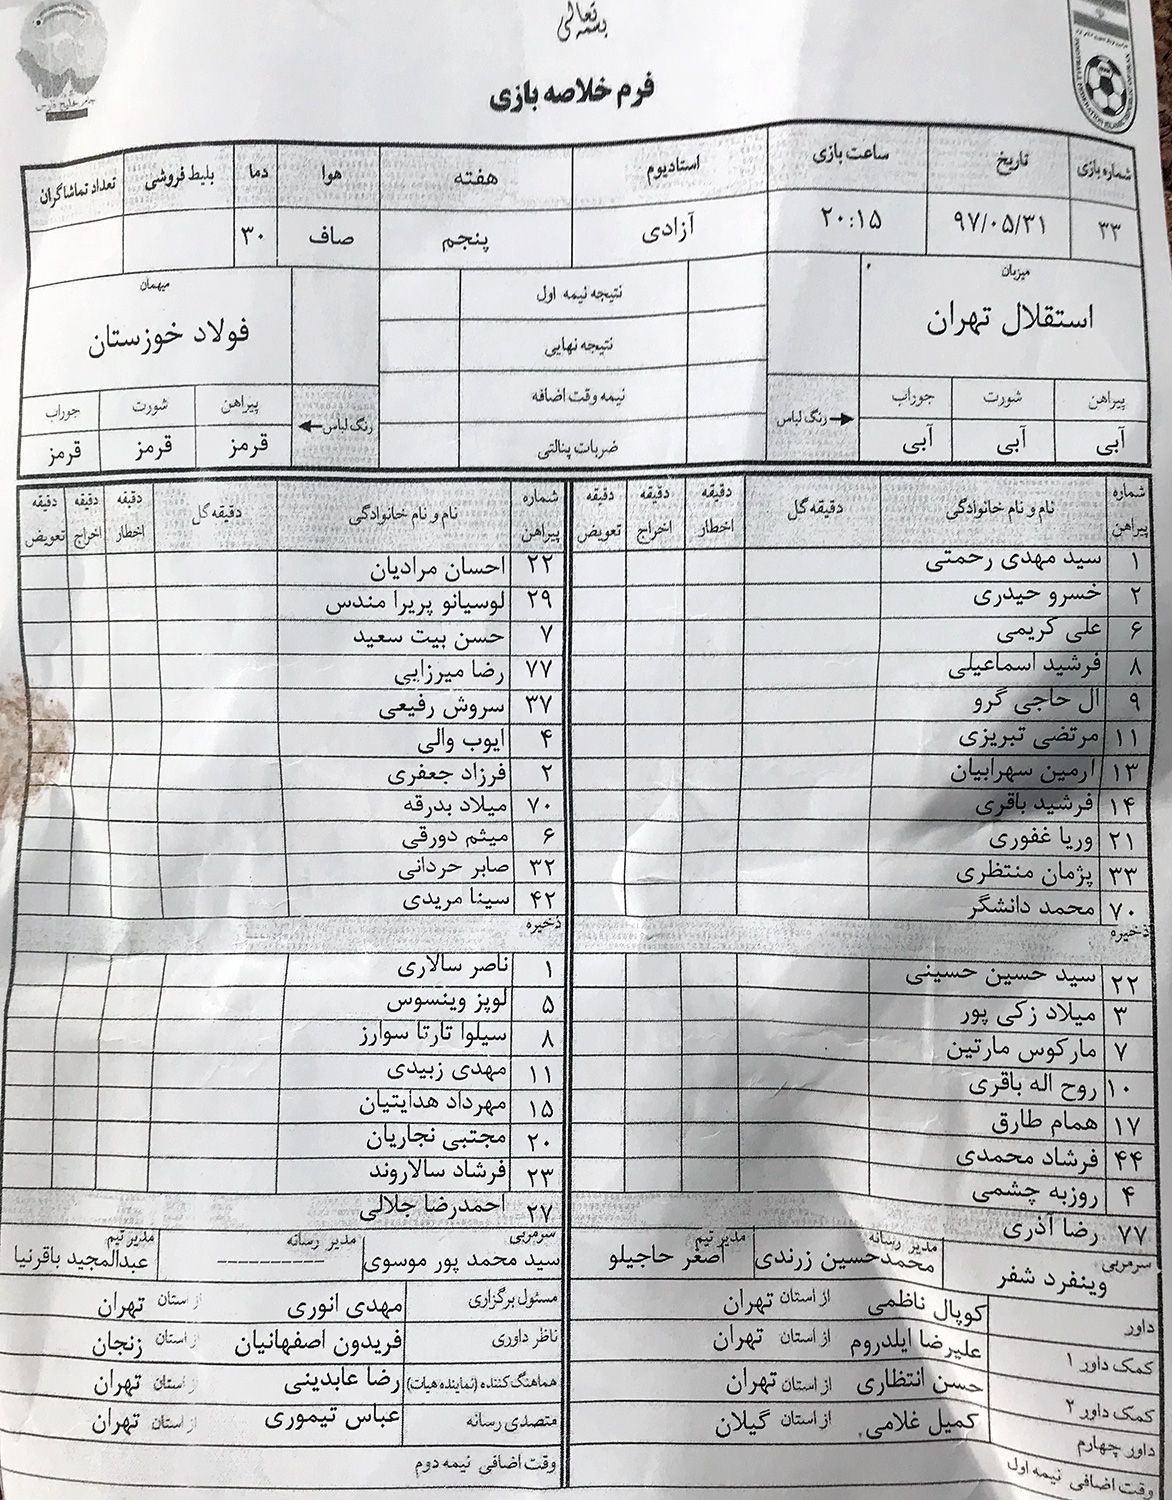 بسمه تعالی
فرم خلاصه بازی
جام خلیج فارس
شماره بازی تاریخ ساعت بازی استادیوم هفته هوا دما بلیط فروشی تعداد تماشاگران
۳۳ ۹۷/۰۵/۳۱ ۲۰:۱۵ آزادی پنجم صاف ۳۰
میزبان
استقلال تهران
نتیجه نیمه اول
نتیجه نهایی
نیمه وقت اضافه
ضربات پنالتی
میهمان
فولاد خوزستان
پیراهن شورت جوراب رنگ لباس
آبی آبی آبی
رنگ لباس پیراهن شورت جوراب
قرمز قرمز قرمز
شماره پیراهن نام و نام خانوادگی دقیقه گل دقیقه اخطار دقیقه اخراج دقیقه تعویض
۱ سید مهدی رحمتی
۲ خسرو حیدری
۶ علی کریمی
۸ فرشید اسماعیلی
۹ ال حاجی گرو
۱۱ مرتضی تبریزی
۱۳ آرمین سهرابیان
۱۴ فرشید باقری
۲۱ وریا غفوری
۳۳ پژمان منتظری
۷۰ محمد دانشگر
ذخیره
۲۲ سید حسین حسینی
۳ میلاد زکی پور
۷ مارکوس مارتین
۱۰ روح اله باقری
۱۷ همام طارق
۴۴ فرشاد محمدی
۴ روزبه چشمی
۷۷ رضا آذری
شماره پیراهن نام و نام خانوادگی دقیقه گل دقیقه اخطار دقیقه اخراج دقیقه تعویض
۲۲ احسان مرادیان
۲۹ لوسیانو پریرا مندس
۷ حسن بیت سعید
۷۷ رضا میرزایی
۳۷ سروش رفیعی
۴ ایوب والی
۲ فرزاد جعفری
۷۰ میلاد بدرقه
۶ میثم دورقی
۳۲ صابر حردانی
۴۲ سینا مریدی
ذخیره
۱ ناصر سالاری
۵ لوپز وینسوس
۸ سیلوا تارتا سوارز
۱۱ مهدی زبیدی
۱۵ مهرداد هدایتیان
۲۰ مجتبی نجاریان
۲۳ فرشاد سالاروند
۲۷ احمدرضا جلالی
سرمربی وینفرد شفر مدیر رسانه محمدحسین زرندی مدیر تیم اصغر حاجیلو
سرمربی سید محمد پور موسوی مدیر رسانه ---------- مدیر تیم عبدالمجید باقرنیا
داور کوپال ناظمی از استان تهران
کمک داور ۱ علیرضا ایلدروم از استان تهران
کمک داور ۲ حسن انتظاری از استان تهران
داور چهارم کمیل غلامی از استان گیلان
وقت اضافی نیمه اول
مسئول برگزاری مهدی انوری از استان تهران
ناظر داوری فریدون اصفهانیان از استان زنجان
هماهنگ کننده (نماینده هیات) رضا عابدینی از استان تهران
متصدی رسانه عباس تیموری از استان تهران
وقت اضافی نیمه دوم